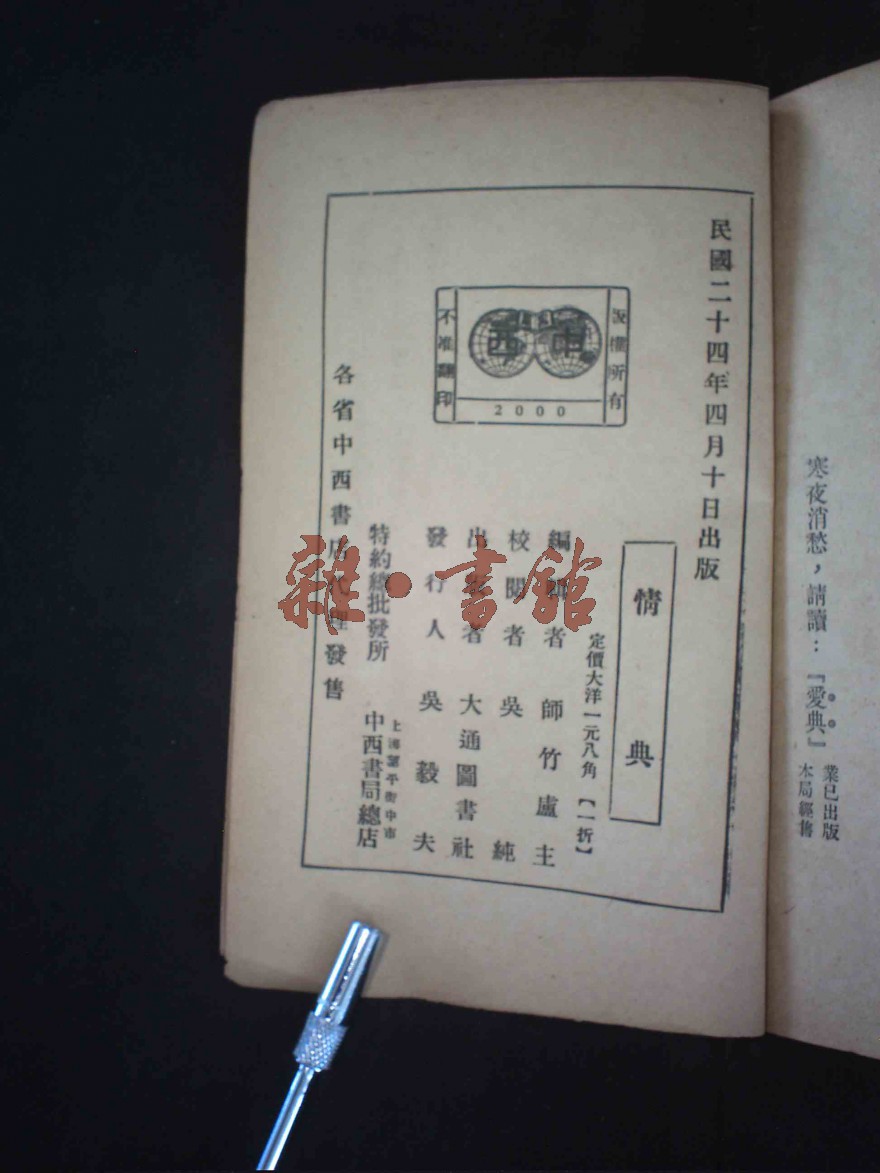 寒夜消愁，請讀：『愛典』
業已出版
本局經售
民國二十四年四月十日出版
版權所有
中西
2000
不准翻印
情典
定價大洋一元八角【一折】
編輯者 師竹廬主
校閱者 吳純
出版者 大通圖書社
發行人 吳毅夫
特約總批發所 上海望平街中市 中西書局總店
各省中西書局代理發售
雜·書館